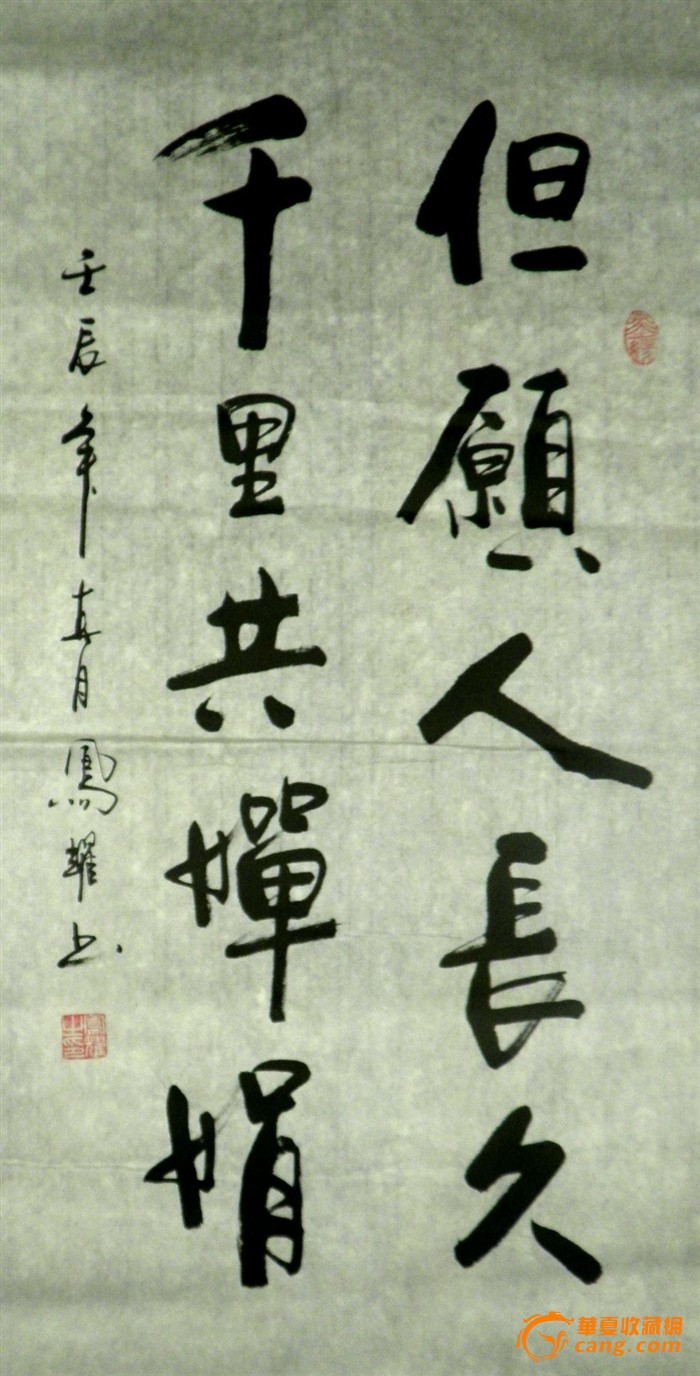 但願人長久
千里共嬋娟
壬辰年春月鳳耀书
華夏收藏網
cang.com